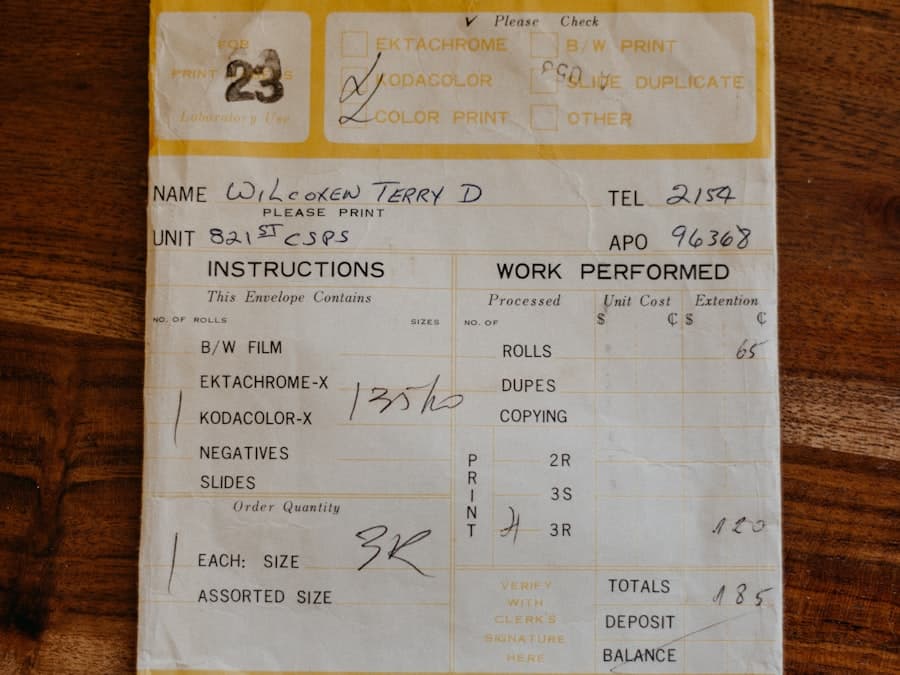 ✓ Please Check
FOR
EKTACHROME B/W PRINT
PRINT 23 S
KODACOLOR 053 SLIDE DUPLICATE
Laboratory Use
COLOR PRINT OTHER
NAME WILCOXEN TERRY D TEL 2154
PLEASE PRINT
UNIT 821ST CSPS APO 96368
INSTRUCTIONS WORK PERFORMED
This Envelope Contains Processed Unit Cost Extention
NO. OF ROLLS SIZES NO. OF $ ₵ $ ₵
B/W FILM ROLLS 65
EKTACHROME-X DUPES
1 KODACOLOR-X 135/20 COPYING
NEGATIVES PRINT 2R
SLIDES 3S
Order Quantity
3R 120
1 EACH: SIZE 3R
VERIFY TOTALS 185
ASSORTED SIZE WITH
CLERK'S DEPOSIT
SIGNATURE
HERE BALANCE